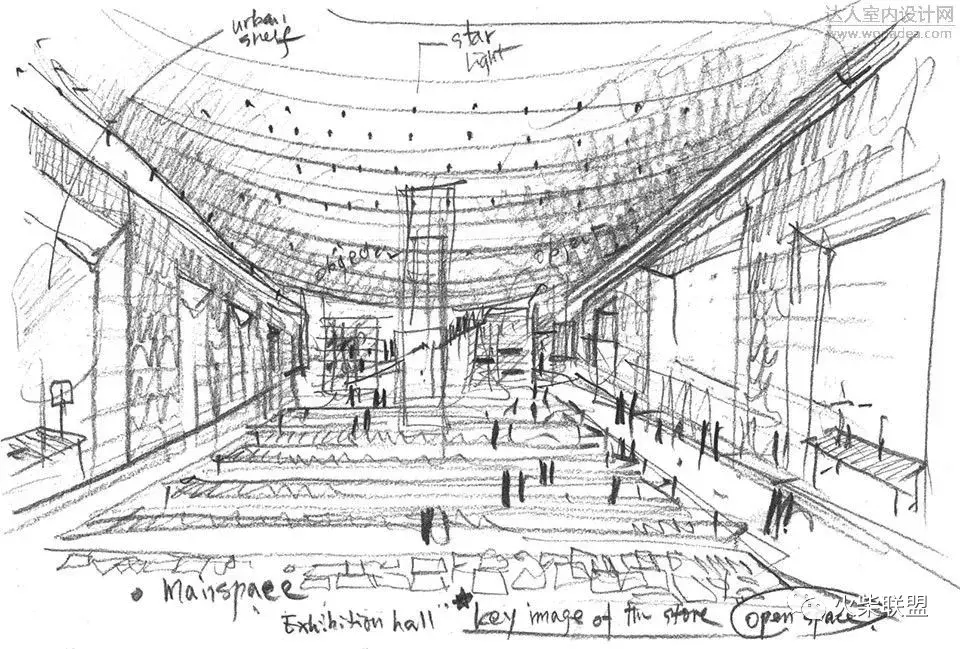 达人室内设计网
www.wonadea.com
urban
shelf
star
light
• Mainspace
"Exhibition hall" ★ key image of the store open space.
火柴联盟